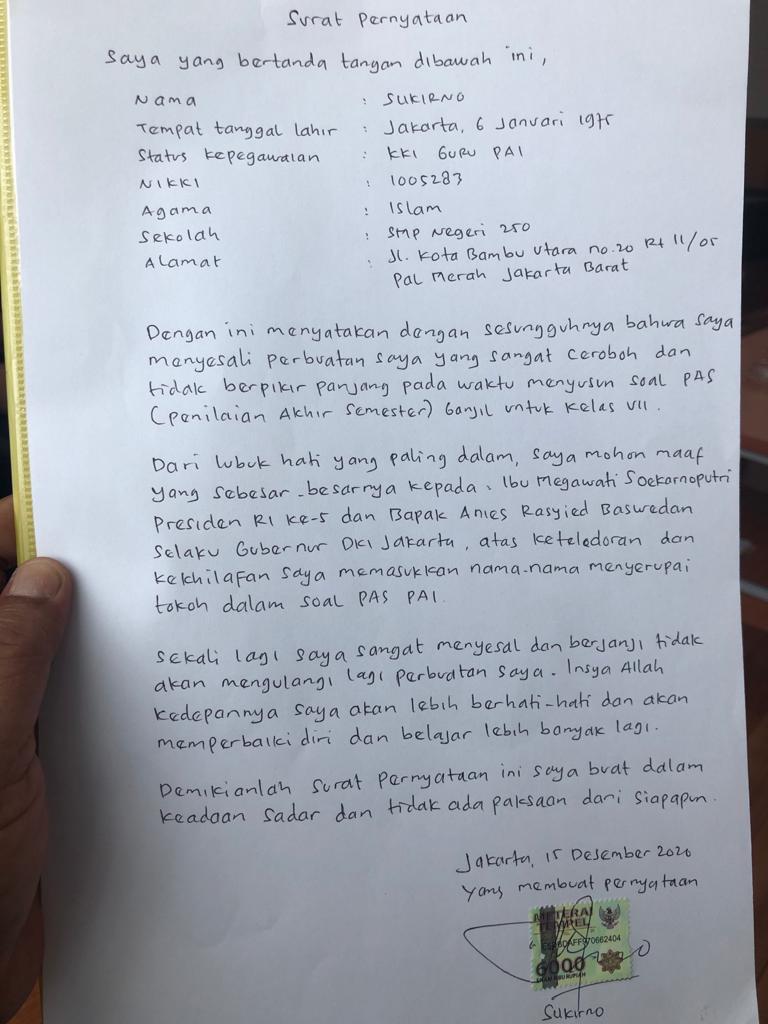 Surat Pernyataan
Saya yang bertanda tangan dibawah ini,
Nama : SUKIRNO
Tempat tanggal lahir : Jakarta, 6 Januari 1975
Status kepegawaian : KKI GURU PAI
NIKKI : 1005283
Agama : Islam
Sekolah : SMP Negeri 250
Alamat : Jl. Kota Bambu Utara no.20 Rt 11/05
Pal Merah Jakarta Barat
Dengan ini menyatakan dengan sesungguhnya bahwa saya
menyesali perbuatan saya yang sangat ceroboh dan
tidak berpikir panjang pada waktu menyusun soal PAS
(Penilaian Akhir Semester) Ganjil untuk kelas VII.
Dari lubuk hati yang paling dalam, saya mohon maaf
yang sebesar-besarnya kepada : Ibu Megawati Soekarnoputri
Presiden RI ke-5 dan Bapak Anies Rasyied Baswedan
selaku Gubernur DKI Jakarta, atas keteledoran dan
kekhilafan saya memasukkan nama-nama menyerupai
tokoh dalam soal PAS PAI.
Sekali lagi saya sangat menyesal dan berjanji tidak
akan mengulangi lagi perbuatan saya. Insya Allah
kedepannya saya akan lebih berhati-hati dan akan
memperbaiki diri dan belajar lebih banyak lagi.
Demikianlah surat pernyataan ini saya buat dalam
keadaan sadar dan tidak ada paksaan dari siapapun.
Jakarta, 15 Desember 2020
Yang membuat pernyataan
METERAI
TEMPEL
6000
ENAM RIBU RUPIAH
Sukirno